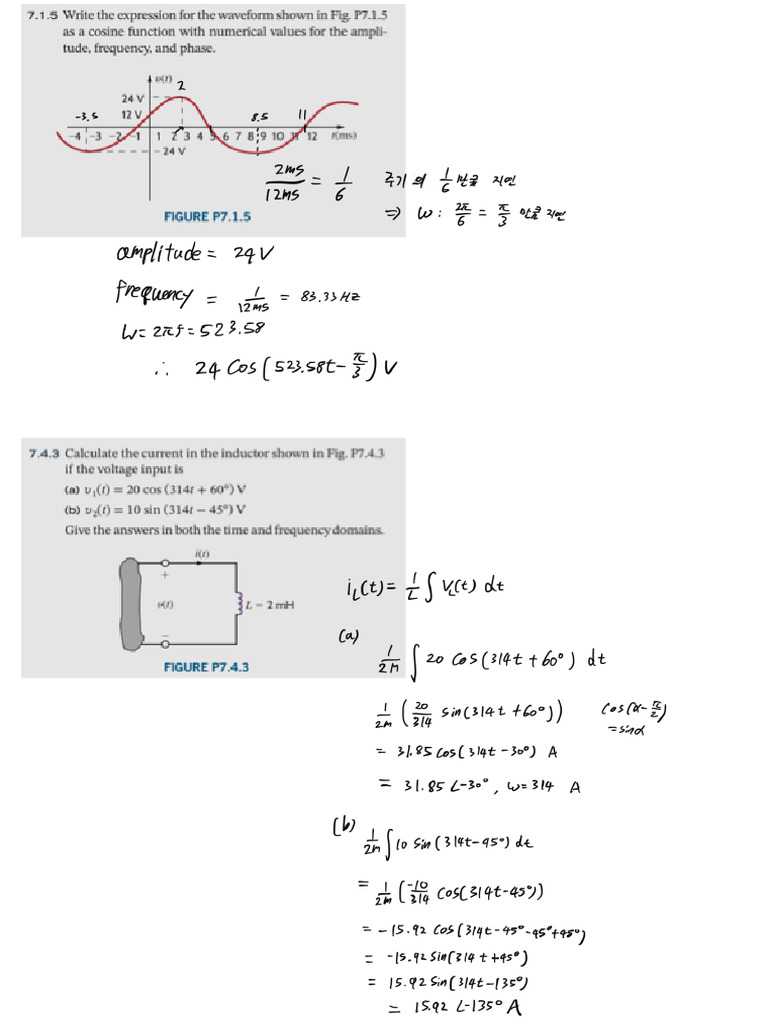 7.1.5 Write the expression for the waveform shown in Fig. P7.1.5
as a cosine function with numerical values for the ampli-
tude, frequency, and phase.
v(t)
2
24 V
12 V
-3.5
8.5
11
-4 -3 -2 -1 1 2 3 4 5 6 7 8 9 10 11 12 t(ms)
- 24 V
2ms/12ms = 1/6 주기의 1/6 만큼 지연
⇒ ω: 2π/6 = π/3 만큼 지연
FIGURE P7.1.5
amplitude = 24V
frequency = 1/12ms = 83.33Hz
ω= 2πf = 523.58
∴ 24 Cos(523.58t-π/3) V
7.4.3 Calculate the current in the inductor shown in Fig. P7.4.3
if the voltage input is
(a) v₁(t) = 20 cos (314t + 60°) V
(b) v₂(t) = 10 sin (314t − 45°) V
Give the answers in both the time and frequency domains.
i(t)
+
v(t)
L = 2 mH
−
FIGURE P7.4.3
i_L(t) = 1/L ∫ V_L(t) dt
(a)
1/2m ∫ 20 cos(314t+60°) dt
1/2m (20/314 sin(314t+60°)) cos(α-π/2)
=sinα
= 31.85 cos(314t-30°) A
= 31.85 ∠-30°, ω=314 A
(b)
1/2m ∫10 sin(314t-45°) dt
= 1/2m (-10/314 cos(314t-45°))
= -15.92 cos(314t-45°-45°+45°)
= -15.92 sin(314t+45°)
= 15.92 sin(314t-135°)
= 15.92 ∠-135° A